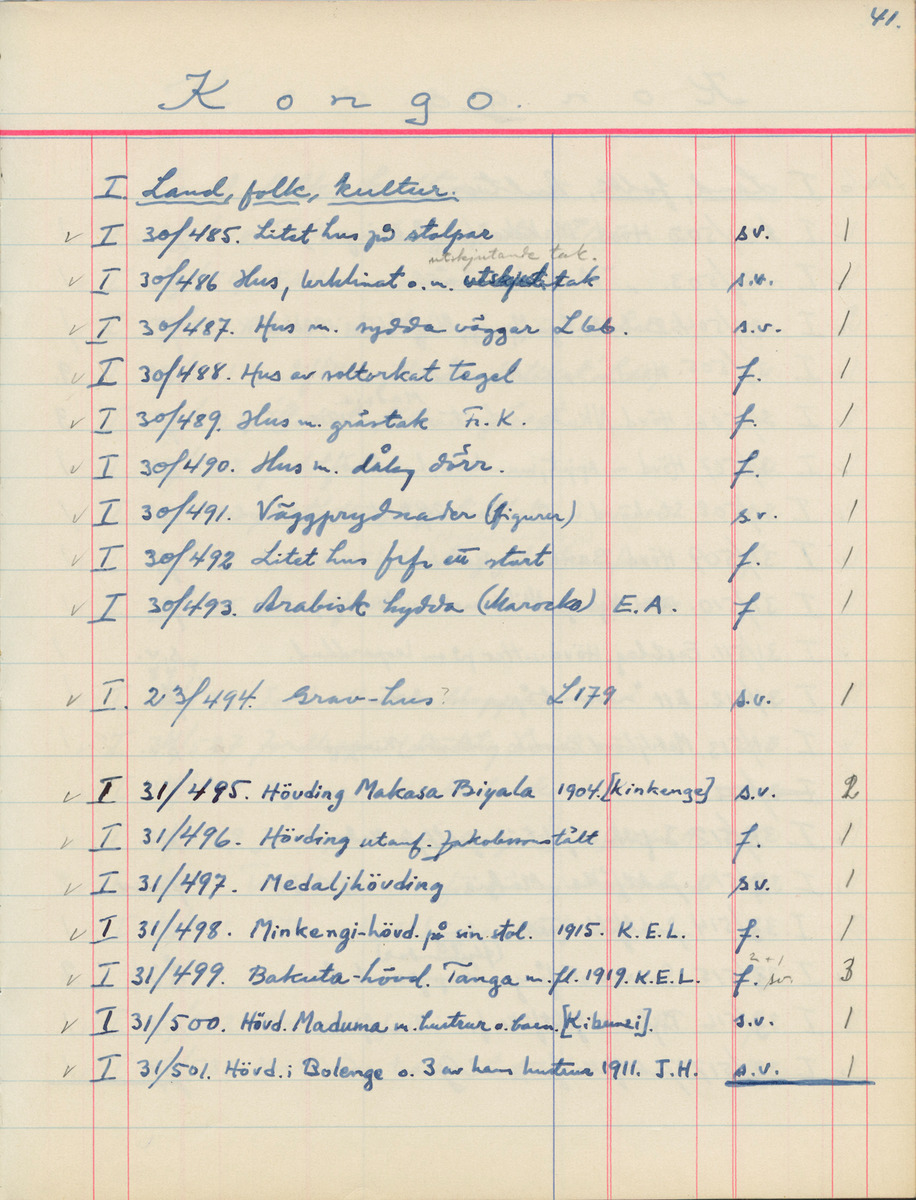 41.
Kongo.
I Land, folk, kultur.
✓ I 30/485. Litet hus på stolpar s.v. 1
utskjutande tak.
✓ I 30/486 Hus, lerklinat o. m. utskjut. tak s.v. 1
✓ I 30/487. Hus m. sydda väggar L 66. s.v. 1
✓ I 30/488. Hus av soltorkat tegel f. 1
✓ I 30/489. Hus m. grästak Fr. K. f. 1
✓ I 30/490. Hus m. dålig dörr. f. 1
✓ I 30/491. Väggprydnader (figurer) s.v. 1
✓ I 30/492 Litet hus ett stort f. 1
✓ I 30/493. Arabisk hydda (Marocko) E.A. f 1
✓ I. 23/494. Grav-hus? L179 s.v. 1
✓ I 31/495. Hövding Makasa Biyala 1904. [Kinkenge] s.v. 2
✓ I 31/496. Hövding utanf. Jakobssons tält f. 1
✓ I 31/497. Medaljhövding s.v. 1
✓ I 31/498. Minkengi-hövd. på sin stol. 1915. K.E.L. f. 1
✓ I 31/499. Bakuta-hövd. Tanga m. fl. 1919. K.E.L. f. 2 + 1 sv. 3
✓ I 31/500. Hövd. Maduma m. hustrur o. barn. [Kibunzi]. s.v. 1
✓ I 31/501. Hövd. i Bolenge o. 3 av hans hustrur 1911. J.H. s.v. 1